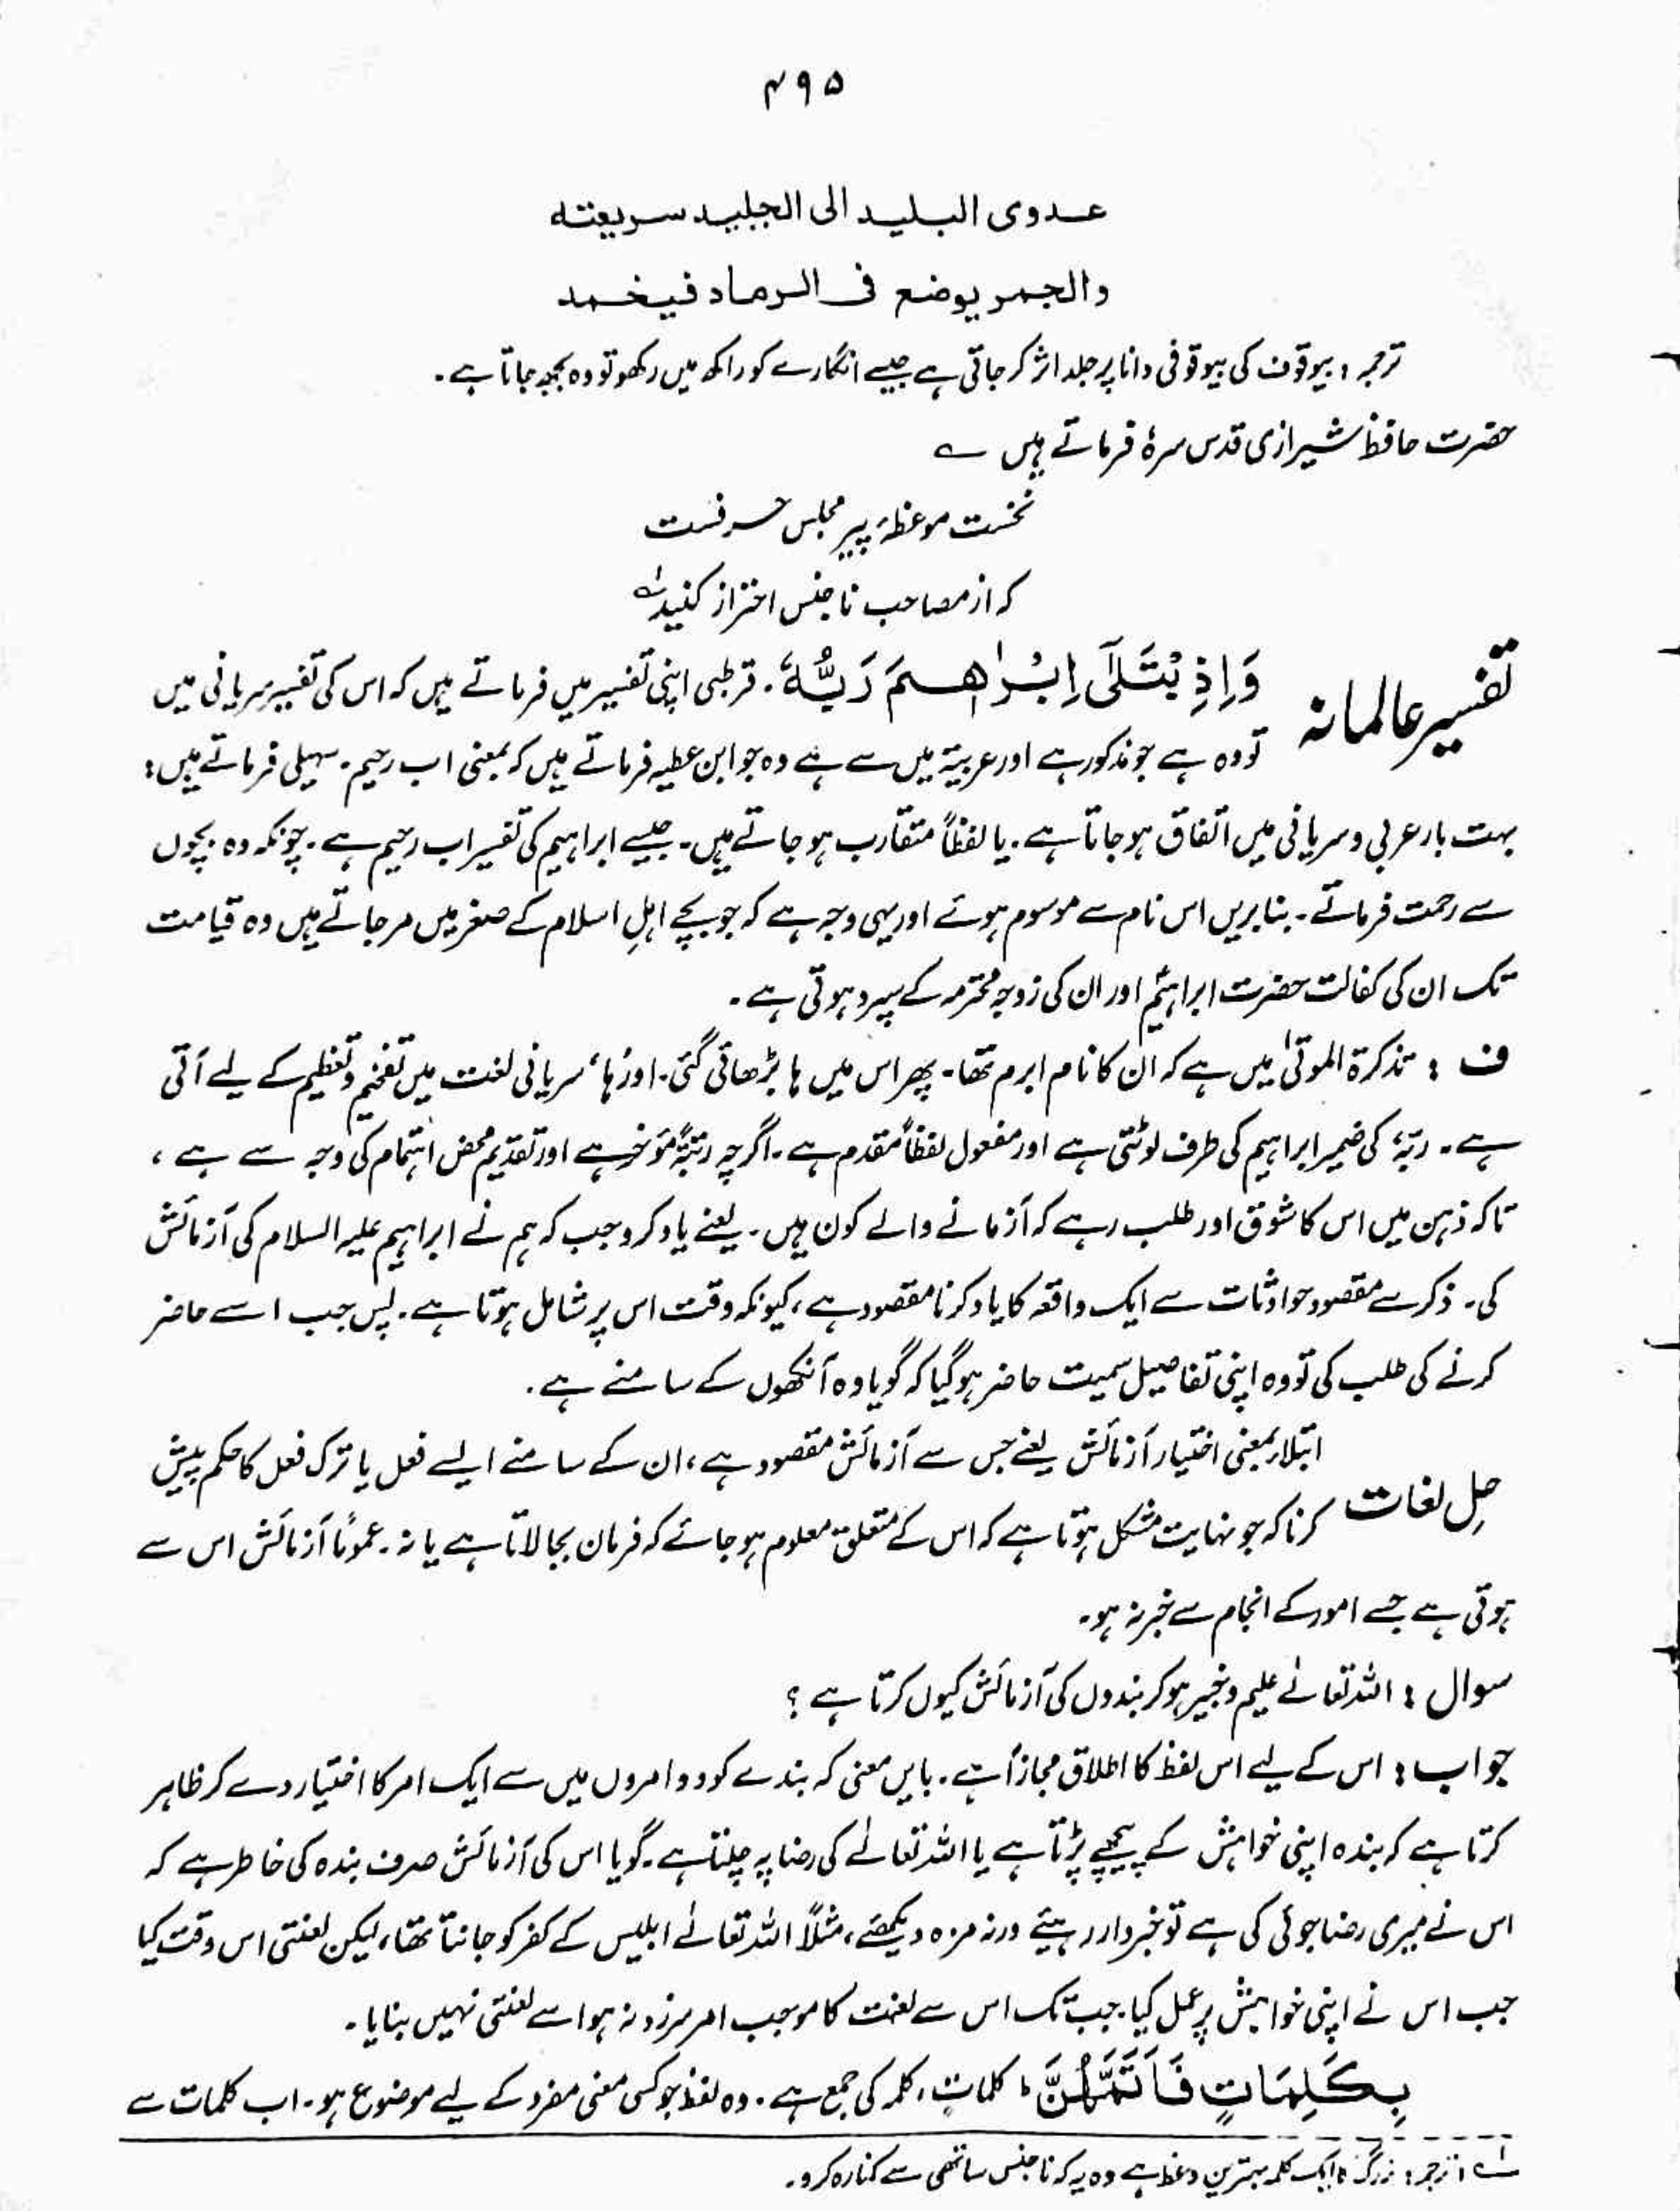 ۴۹۵
عدوی البلید الی الجلید سریعته
والجمر یوضع فی الرماد فیخمد
ترجمہ : بیوقوف کی بیوقوفی دانا پر جلد اثر کر جاتی ہے جیسے انگارے کو راکھ میں رکھو تو وہ بجھ جاتا ہے۔
حضرت حافظ شیرازی قدس سرہٗ فرماتے ہیں ؎
نخست موعظۂ پیر مجلس حرفست
کہ از مصاحب ناجنس احتراز کنید ؎۱
تفسیر عالمانہ وَاِذِ بْتَلٰٓی اِبْرٰاهٖمَ رَبُّهٗ۔ قرطبی اپنی تفسیر میں فرماتے ہیں کہ اس کی تفسیر سریانی میں
تو وہ ہے جو مذکور ہے اور عربیۃ میں سے ہے وہ جو ابن عطیہ فرماتے ہیں کہ بمعنی اب رحیم۔ سہیلی فرماتے ہیں :
بہت بار عربی و سریانی میں اتفاق ہو جاتا ہے۔ یا لفظاً متقارب ہو جاتے ہیں۔ جیسے ابراہیم کی تفسیر اب رحیم ہے۔ چونکہ وہ بچوں
سے رحمت فرماتے۔ بنا بریں اس نام سے موسوم ہوئے اور یہی وجہ ہے کہ جو بچے اہلِ اسلام کے صغر میں مر جاتے ہیں وہ قیامت
تک ان کی کفالت حضرت ابراہیمؑ اور ان کی زوجہ محترمہ کے سپرد ہوتی ہے۔
ف : تذکرۃ الموتیٰ میں ہے کہ ان کا نام ابرم تھا۔ پھر اس میں ہا بڑھائی گئی۔ اور 'ہا' سریانی لغت میں تفخیم و تعظیم کے لیے آتی
ہے۔ ربّہٗ کی ضمیر ابراہیم کی طرف لوٹتی ہے اور مفعول لفظاً مقدم ہے۔ اگرچہ رتبۃً مؤخر ہے اور تقدیم محض اہتمام کی وجہ سے ہے ،
تاکہ ذہن میں اس کا شوق اور طلب رہے کہ آزمانے والے کون ہیں۔ یعنے یاد کرو جب کہ ہم نے ابراہیم علیہ السلام کی آزمائش
کی۔ ذکر سے مقصود حوادثات سے ایک واقعہ کا یاد کرنا مقصود ہے ، کیونکہ وقت اس پر شامل ہوتا ہے۔ پس جب اسے حاضر
کرنے کی طلب کی تو وہ اپنی تفاصیل سمیت حاضر ہو گیا کہ گویا وہ آنکھوں کے سامنے ہے۔
ابتلاء بمعنی اختیار آزمائش یعنے جس سے آزمائش مقصود ہے ، ان کے سامنے ایسے فعل یا ترک فعل کا حکم پیش
حلِ لغات کرنا کہ جو نہایت مشکل ہوتا ہے کہ اس کے متعلق معلوم ہو جائے کہ فرمان بجا لاتا ہے یا نہ۔ عموماً آزمائش اس سے
ہوتی ہے جسے امور کے انجام سے خبر نہ ہو۔
سوال : اللہ تعالےٰ علیم و خبیر ہو کر بندوں کی آزمائش کیوں کرتا ہے ؟
جواب : اس کے لیے اس لفظ کا اطلاق مجازاً ہے۔ بایں معنی کہ بندے کو دو امروں میں سے ایک امر کا اختیار دے کر ظاہر
کرتا ہے کہ بندہ اپنی خواہش کے پیچھے پڑتا ہے یا اللہ تعالےٰ کی رضا پہ چلتا ہے۔ گویا اس کی آزمائش صرف بندہ کی خاطر ہے کہ
اس نے میری رضا جوئی کی ہے تو خبردار رہیئے ورنہ مزہ دیکھئے ، مثلاً اللہ تعالےٰ ابلیس کے کفر کو جانتا تھا ، لیکن لعنتی اس وقت کیا
جب اس نے اپنی خواہش پر عمل کیا۔ جب تک اس سے لعنت کا موجب امر سرزد نہ ہوا اسے لعنتی نہیں بنایا۔
بِکَلِمَاتٍ فَاَتَمَّهُنَّ ط کلمات ، کلمہ کی جمع ہے۔ وہ لفظ جو کسی معنی مفرد کے لیے موضوع ہو۔ اب کلمات سے
؎۱ : ترجمہ : بزرگ کا ایک کلمہ بہترین وعظ ہے وہ یہ کہ ناجنس ساتھی سے کنارہ کرو۔